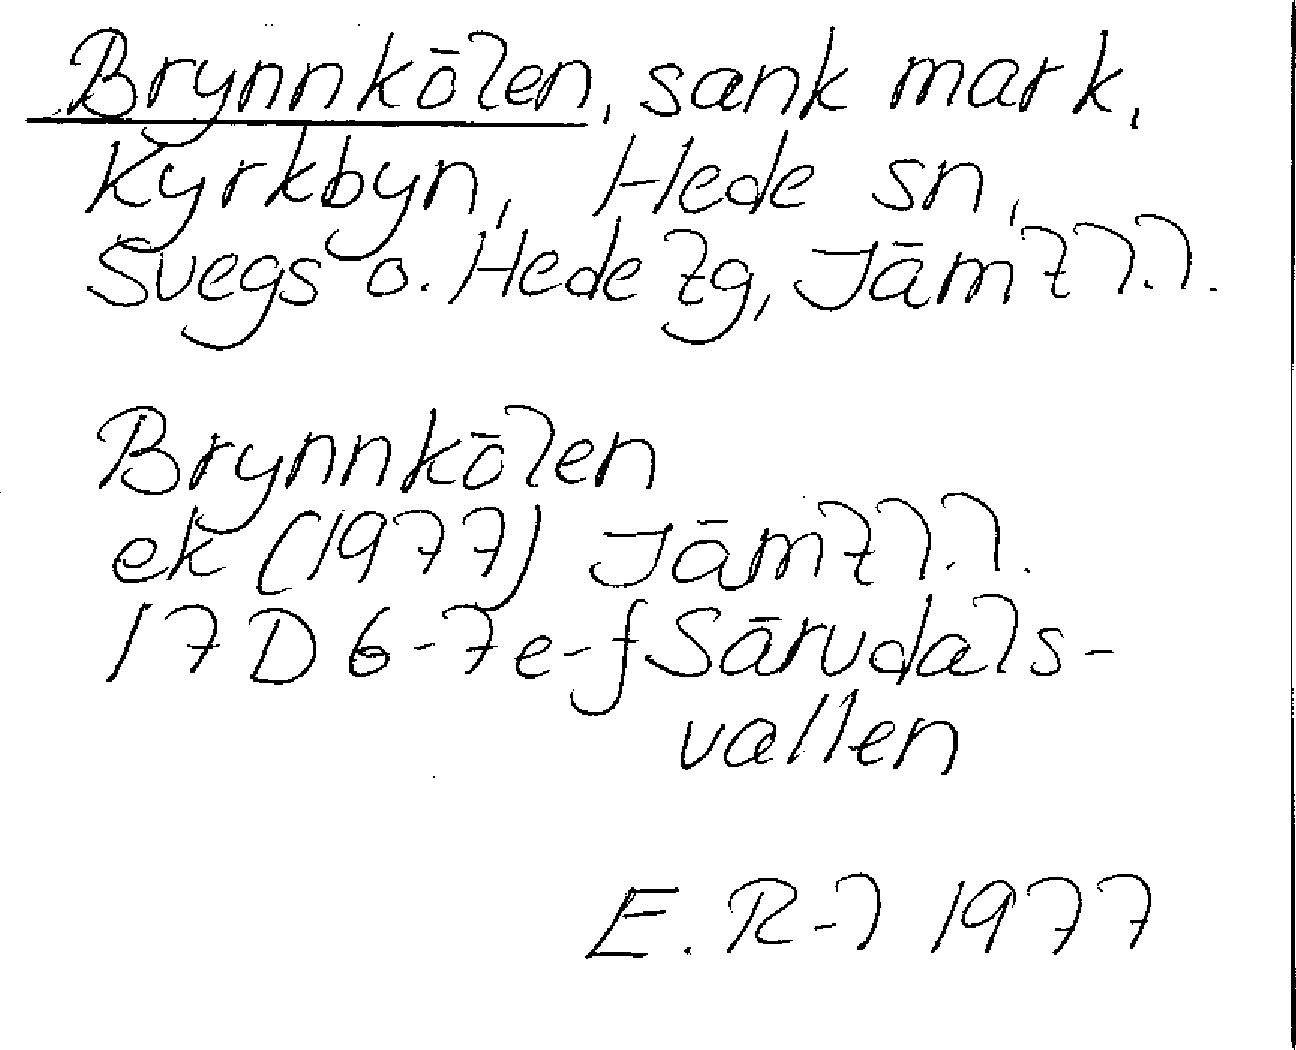 Brynnkölen, sank mark,
Kyrkbyn, Hede sn,
Svegs o. Hede tg, Jämtl.l.
Brynnkölen
ek (1977) Jämtl.l.
17D 6-7e-f Särvdals-
vallen
E. R-l 1977